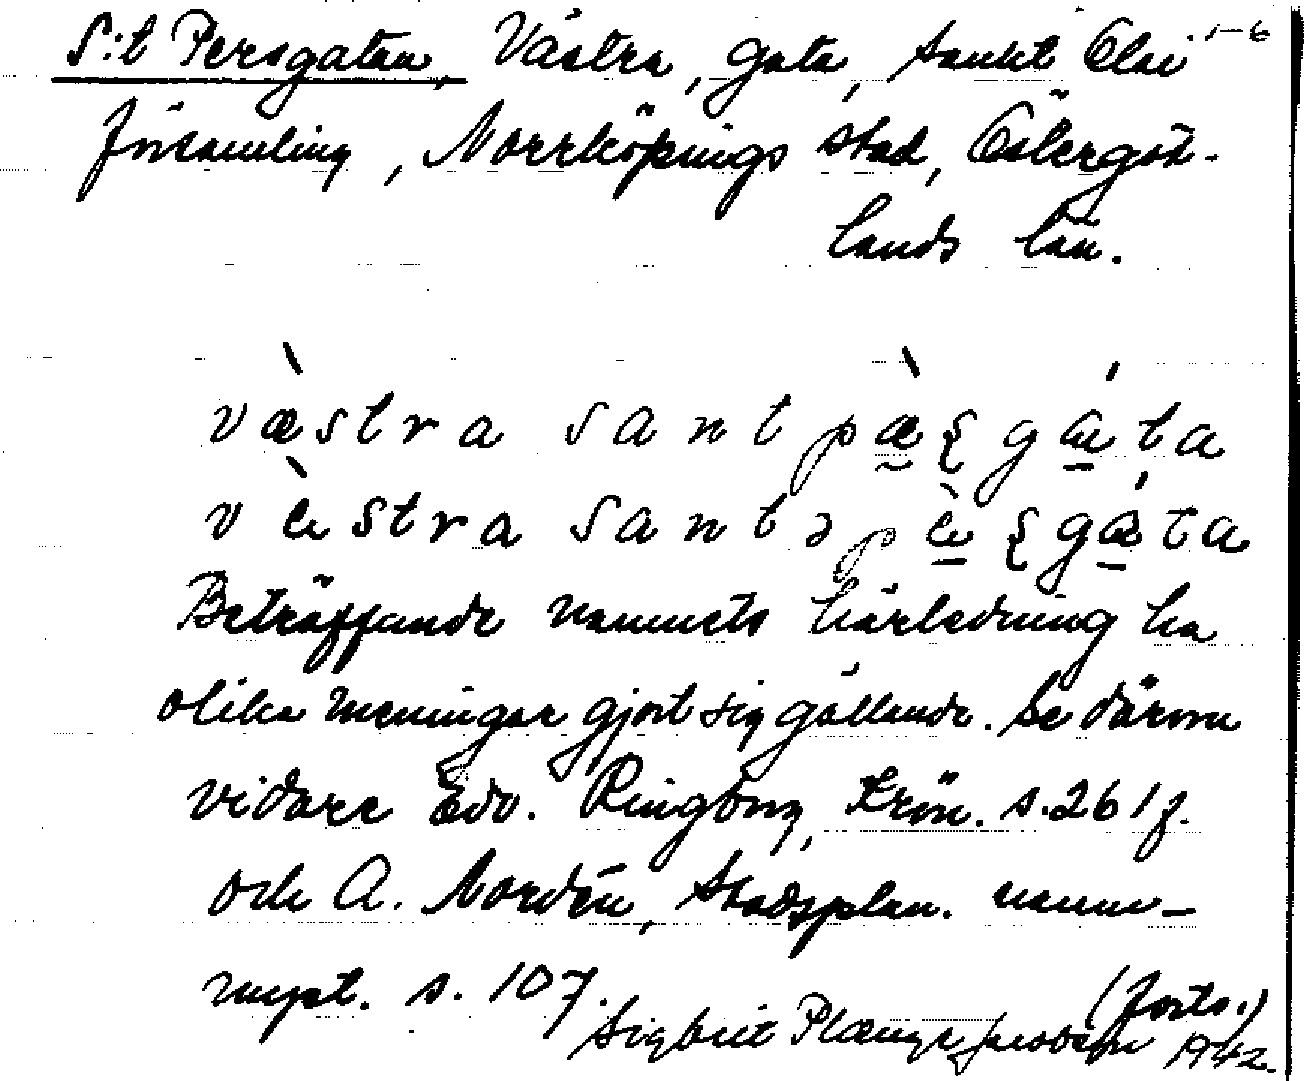 S:t Persgatan, Västra, gata, Sankt Olai 1-6
församling, Norrköpings stad, Östergöt-
lands län.
væ̀stra sant pæ̀ʂgáta
væ̀stra santə pæ̀ʂgáta
Beträffande namnets härledning ha
olika meningar gjort sig gällande. Se därom
vidare Edv. Ringborg, Krön. s. 261 f.
och A. Nordén, Stadsplan. namn-
mypt. s. 107.
(forts.)
Sigbrit Plænge Jacobson 1942.